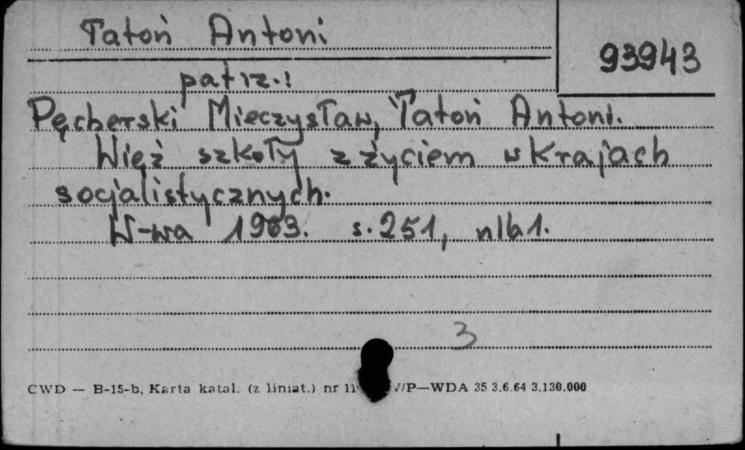 Tatoń Antoni
93943
patrz.:
Pęcherski Mieczysław, Tatoń Antoni.
Więź szkoły z życiem w krajach
socjalistycznych.
W-wa 1963. s. 251, nlb 1.
3
CWD — B-15-b, Karta katal. (z liniat.) nr V/P—WDA 35 3.6.64 3.130.000